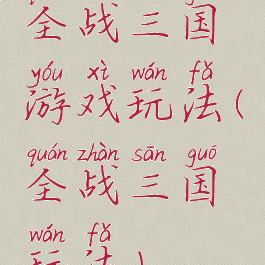 全战三国
yóu xì wán fǎ
游戏玩法(
quán zhàn sān guó
全战三国
wán fǎ
玩法)